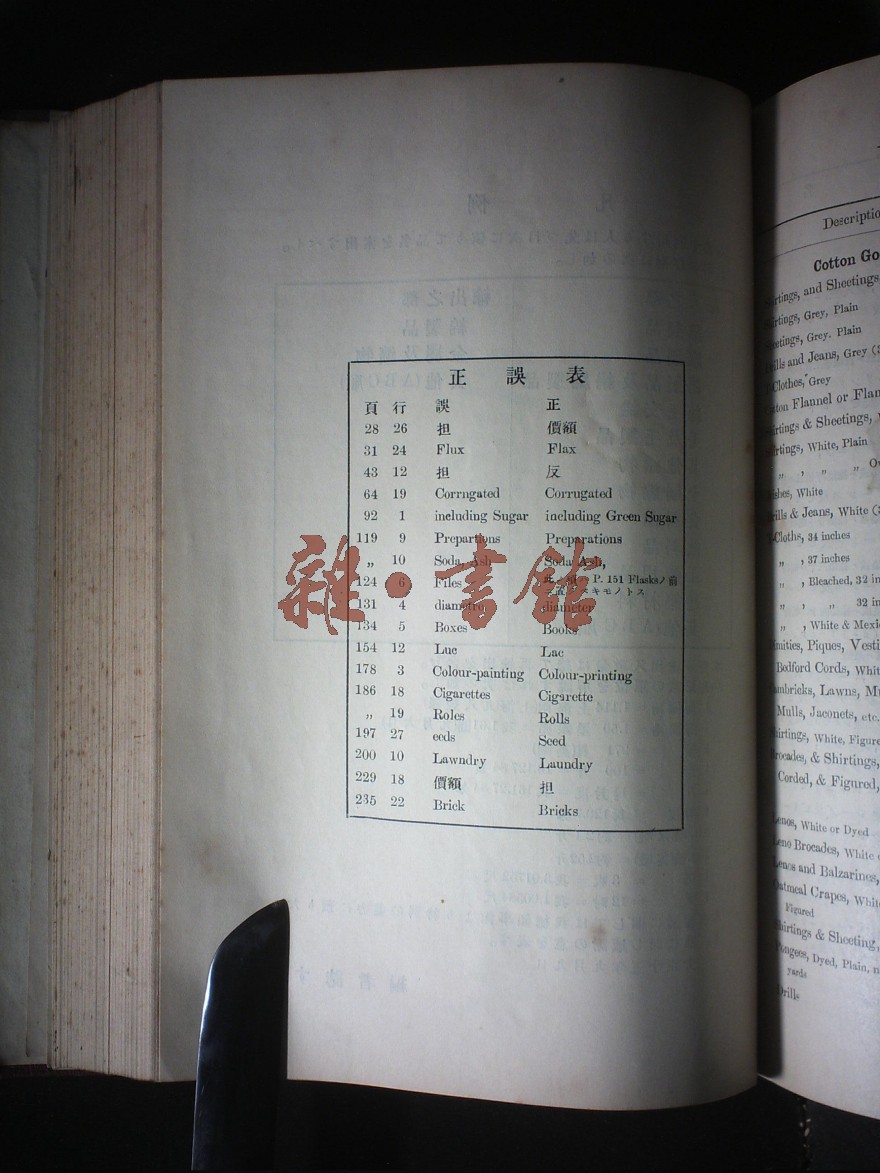 正 誤 表
頁 行 誤 正
28 26 担 價額
31 24 Flux Flax
43 12 担 反
64 19 Corrngated Corrugated
92 1 including Sugar including Green Sugar
119 9 Prepartions Preparations
〃 10 Soda, Ash Soda Ash,
124 6 Files P. 151 Flasksノ前
スキモノトス
131 4 diametre diameter
134 5 Boxes Books
154 12 Luc Lac
178 3 Colour-painting Colour-printing
186 18 Cigarettes Cigarette
〃 19 Roles Rolls
197 27 eeds Seed
200 10 Lawndry Laundry
229 18 價額 担
235 22 Brick Bricks
雜·書館
Descriptio
Cotton Go
rtings, and Sheetings
rtings, Grey, Plain
eetings, Grey, Plain
ills and Jeans, Grey
Clothes, Grey
ton Flannel or Flan
rtings & Sheetings,
rtings, White, Plain
〃 , 〃 〃
ishes, White
rills & Jeans, White
Cloths, 34 inches
〃 , 37 inches
〃 , Bleached, 32 in
〃 , 〃 32 in
〃 , White & Mexi
imities, Piques, Vesti
Bedford Cords, Whit
ambricks, Lawns, Mu
Mulls, Jaconets, etc.
hirtings, White, Figure
rocades, & Shirtings,
Corded, & Figured,
enos, White or Dyed
eno Brocades, White
enos and Balzarines,
Oatmeal Crapes, Whit
Figured
hirtings & Sheeting,
Pongees, Dyed, Plain, n
yards
Drills